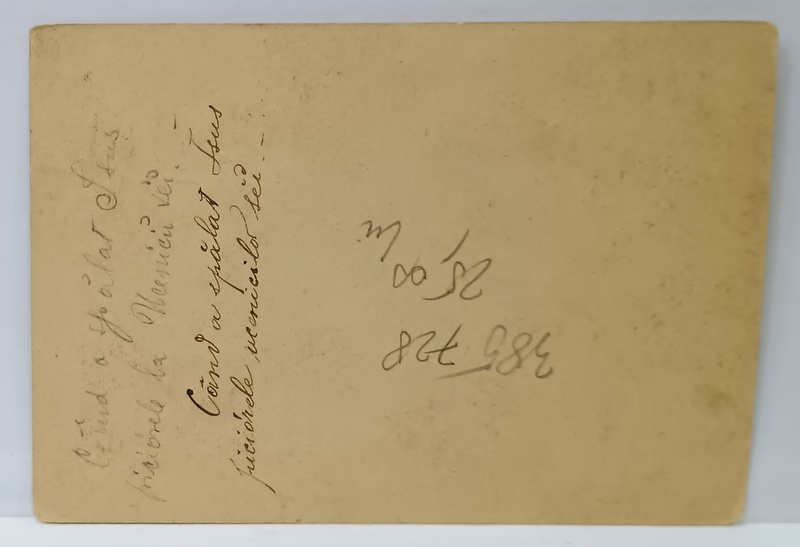 Când a spălat Isus
piciórele la Ucenicii sei.
Când a spălat Isus
piciórele ucenicilor sĕi.
385 728
25,00
lei